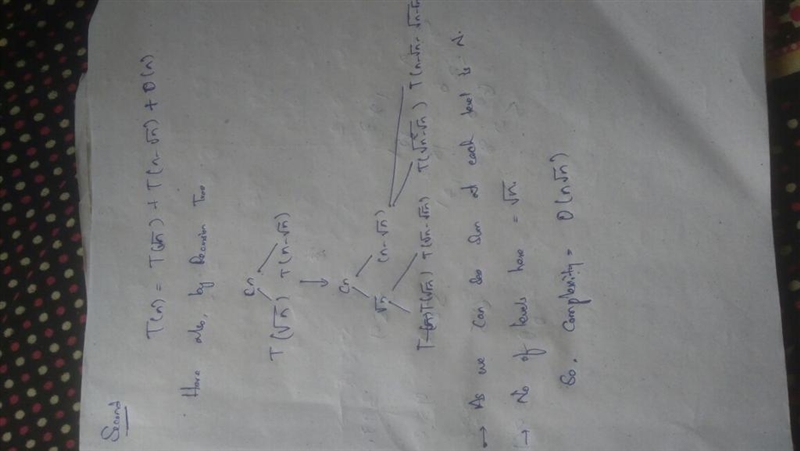 Second
T(n) = T(√n) + T(n-√n) + O(n)
Here also, by Recursion Tree
Cn
T(√n) T(n-√n)
↓
Cn
√n (n-√n)
T(√n) T(√n-√n) T(√n-√n) T(n-√n-√n-√n
→ As we can see sum at each level is N.
→ No of levels here = √n.
So, Complexity = O(n√n)